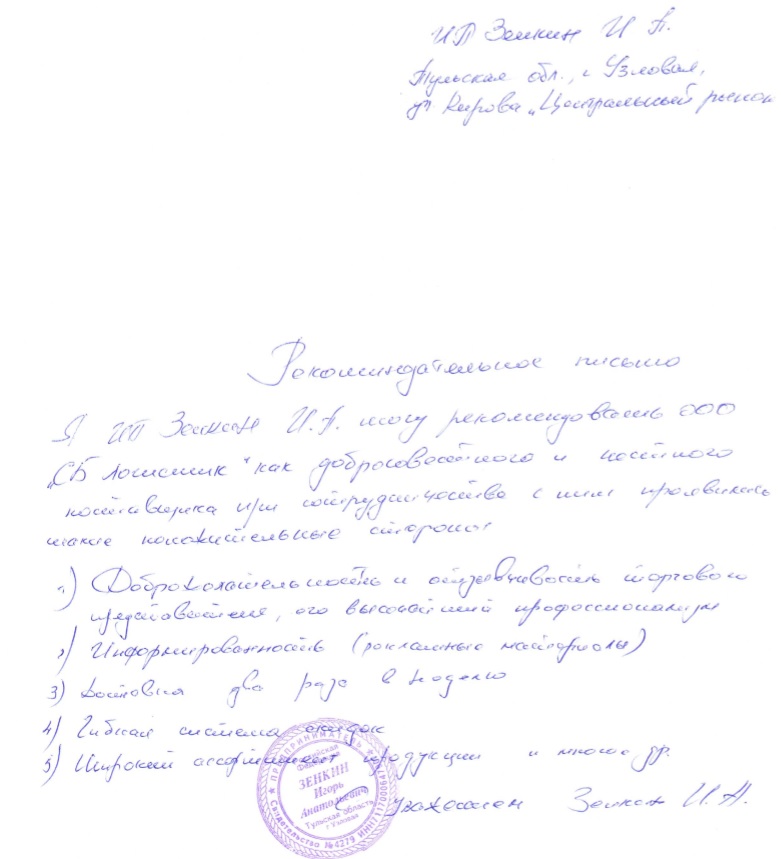 ИП Зенкин И А.
Тульская обл., г Узловая,
ул Кирова „Центральный рынок
Рекоминдательное письмо
Я ИП Зенкин И.А. могу рекомендовать ООО
„СБ Логистик" как добросовестного и честного
поставщика при сотрудничестве с ним проявились
такие положительные стороны
1) Доброжелательность и отзывчивость торгового
представителя, его высочайший профессионализм
2) Информированность (рекламные материалы)
3) Доставка два раза в неделю
4) Гибкая система скидок
5) Широкий ассортимент продукции и многое др.
С уважением Зенкин И.А.
ПРЕДПРИНИМАТЕЛЬ
Российская
Федерация
ЗЕНКИН
Игорь
Анатольевич
Тульская область
г Узловая
Свидетельство №4279